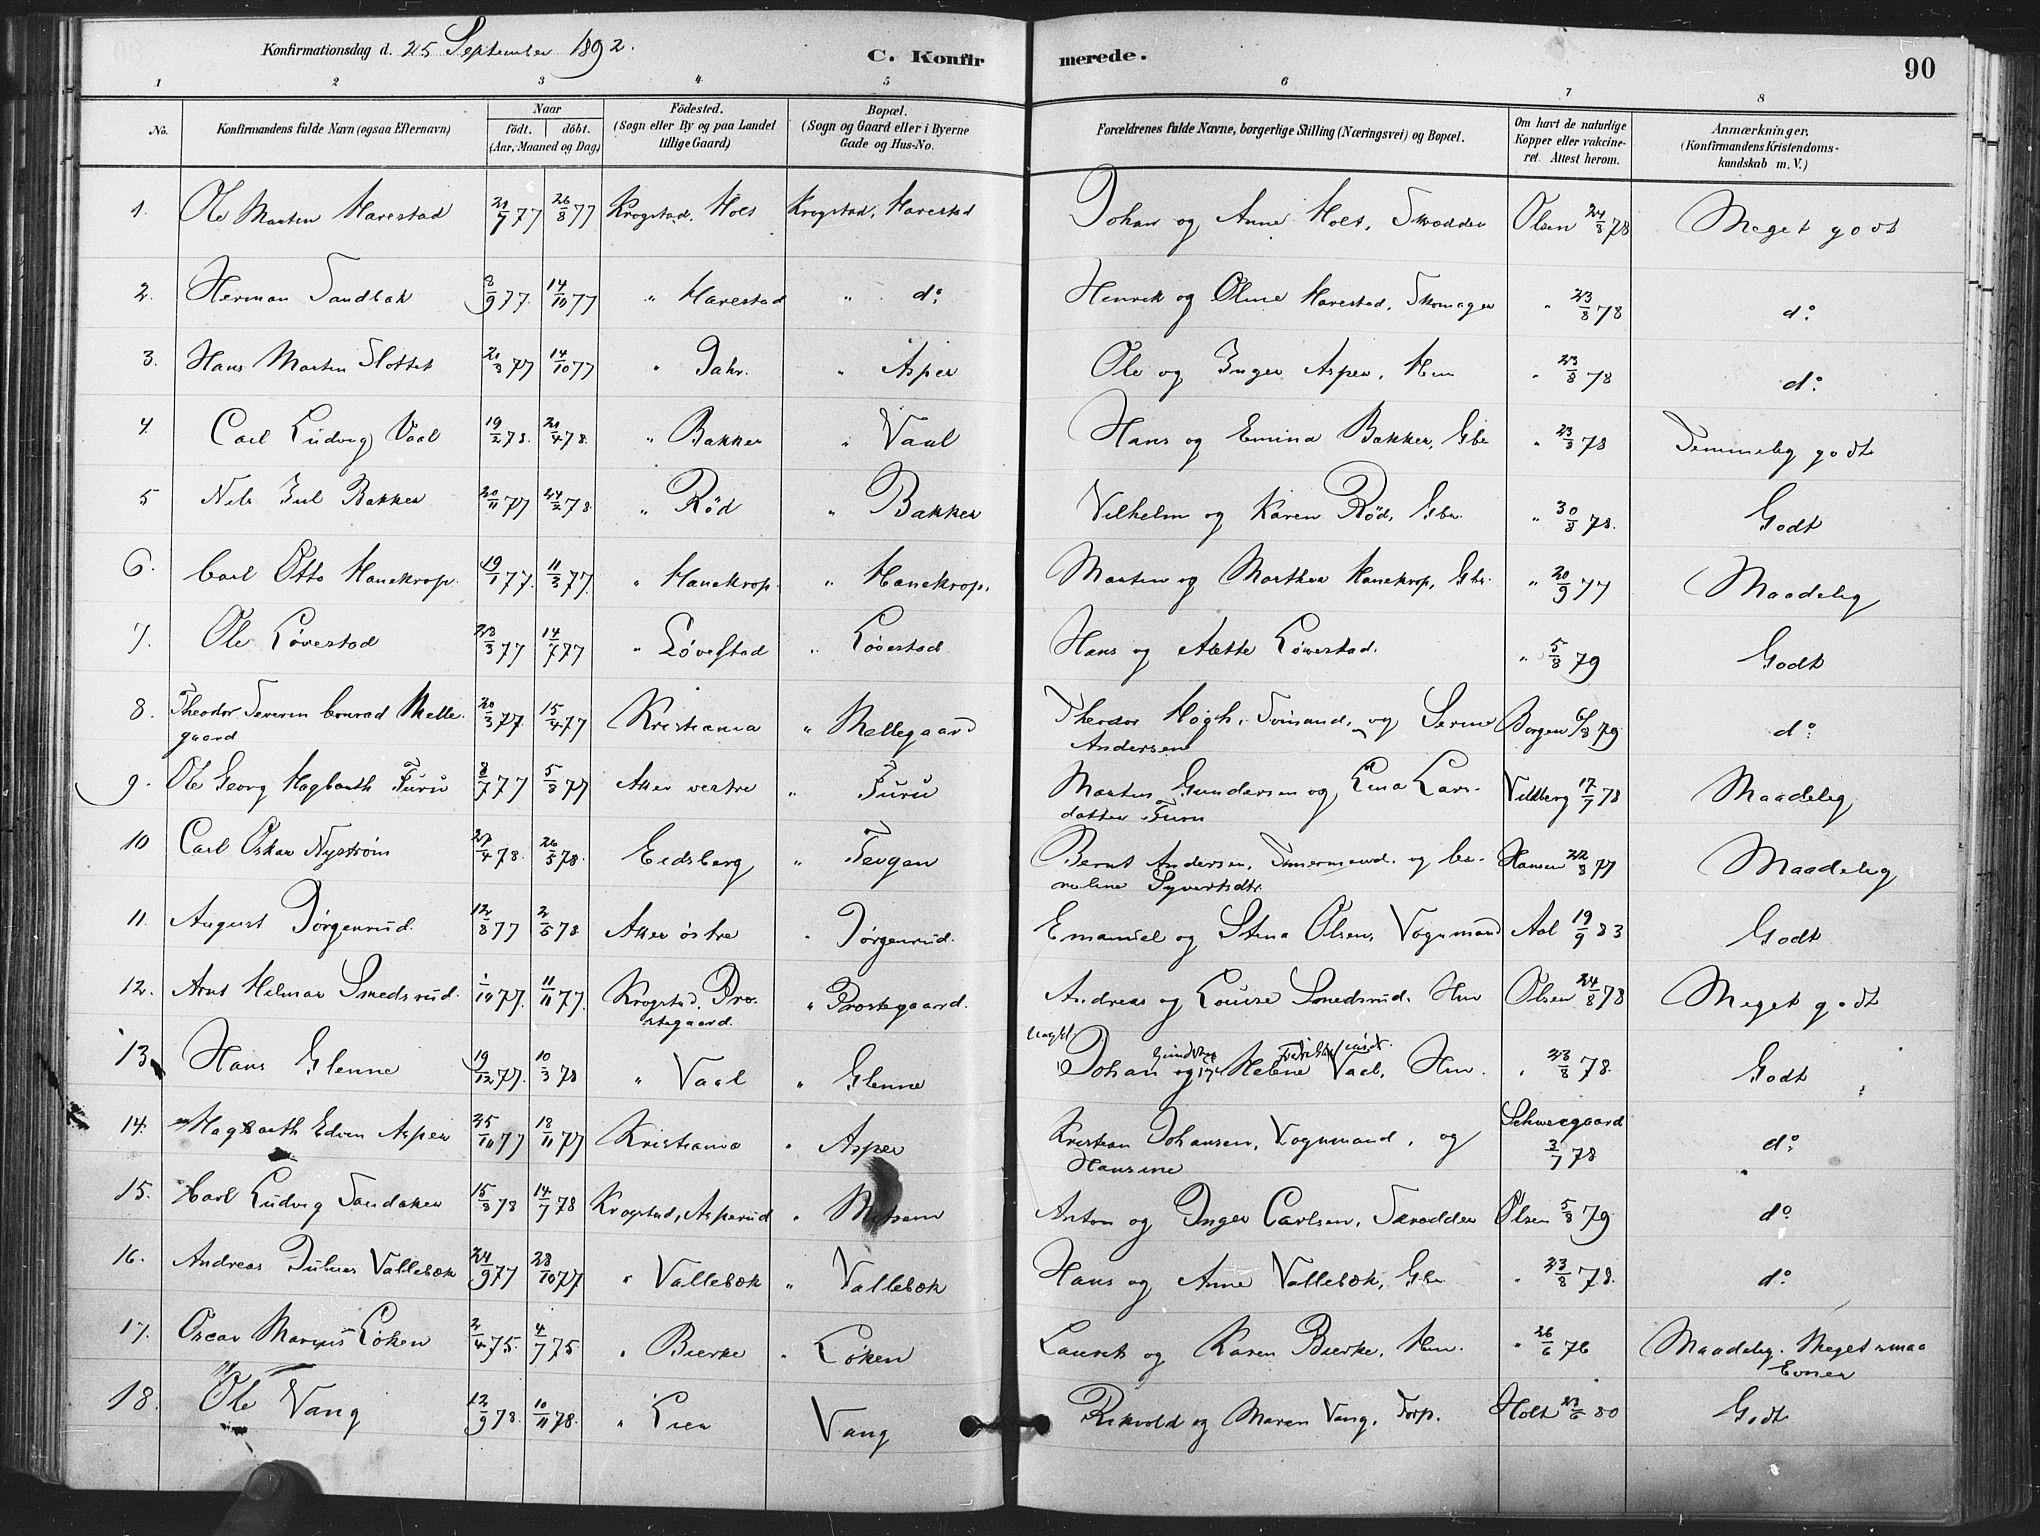 Konfirmationsdag d. 25 September 1892.
C. Konfirmerede.
90
1 2 3 4 5 6 7 8
No.
Konfirmandens fulde Navn (ogsaa Efternavn)
Naar
födt. döbt.
(Aar, Maaned og Dag)
Födested.
(Sogn eller By og paa Landet
tillige Gaard)
Bopæl.
(Sogn og Gaard eller i Byerne
Gade og Hus-No.
Forældrenes fulde Navne, borgerlige Stilling (Næringsvei) og Bopæl.
Om havt de naturlige
Kopper eller vakcine-
ret. Attest herom.
Anmærkninger.
(Konfirmandens Kristendoms-
kundskab m. V.)
1. Ole Martin Harestad 21/7 77 26/8 77 Krogstad, Hols Krogstad, Harestad Johan og Anne Hols, Skrædder Olsen 24/8 78 Meget godt
2. Herman Sandbak 8/9 77. 14/10 77 " Harestad " do. Henrik og Oline Harestad, Skomager " 23/8 78 do.
3. Hans Martin Slottet 21/3 77 14/10 77 " Dahr. " Asper Ole og Inger Asper, Hm " 23/8 78 do.
4. Carl Ludvig Vaal 19/2 78. 21/4 78. " Bakker " Vaal Hans og Emina Bakker, Gbr " 23/8 78 Temmelig godt
5 Nils Jul Bakker 20/11 77 24/2 78 " Rød " Bakker Vilhelm og Karen Rød, Gbr. " 30/8 78. Godt
6. Carl Otto Hanekrop. 19/1 77. 11/3 77. " Hanekrop. " Hanekrop. Martin og Marthea Hanekrop, Gbr. " 20/9 77 Maadelig
7. Ole Løvestad 23/3 77 14/7 77 " Løvestad " Løvestad Hans og Alette Løvestad. " 5/8 79 Godt
8. Theodor Severin Conrad Melle-
gaard 20/3 77. 15/4 77 Kristiania " Mellegaard Theodor Høgh, Sømand, og Serine
Andersen Borgen 6/8 79 do.
9. Ole Georg Hagbarth Furu 8/7 77 5/8 77 Aker vestre " Furu Martin Gundersen og Lina Lars-
datter Furu Vildberg 17/7 78 Maadelig
10 Carl Oskar Nystrøm 27/4 78. 26/5 78. Eidsberg " Tevgen Bernt Andersen, Tømermand. og Ca-
roline Syvertsdtr. Hansen 22/8 77 Maadelig
11. August Jørgenrud. 12/8 77 2/5 78 Aker østre " Jørgenrud. Emanuel og Stina Olsen, Vognmand Aal 19/9 83 Godt
12. Arnt Hilmar Smedsrud. 1/10 77. 11/11 77. Krogstad. Pro-
stegaard. " Prostegaard. Andreas og Louise Smedsrud. Hm Olsen 24/8 78 Meget godt
13. Hans Glenne 19/12 77. 10/3 78 " Vaal " Glenne Johan og Helene Vaal, Hm. " 23/8 78. Godt
14. Hagbarth Edvin Asper 25/10 77 18/11 77 Kristiania " Asper Kristian Johansen, Vognmand, og
Hansine Schweegaard
3/7 78 do.
15. Carl Ludvig Sandaker 15/3 78 14/7 78 Krogstad, Asperud " Anton og Inger Carlsen, Skrædder Olsen 5/8 79 do.
16. Andreas Julius Vallebæk 24/9 77 28/10 77 " Vallebæk " Vallebæk Hans og Anne Vallebæk, Gbr " 23/8 78. do.
17. Oscar Marius Løken 2/4 75. 4/7 75 " Bierke " Løken Laurits og Karen Bierke, Hm. " 26/6 76 Maadelig. Meget smaa
Evner
18. Ole Vang 12/9 78. 10/11 78. " Lier Vang Rikvold og Maren Vang, Torp. Holt 23/6 80 Godt